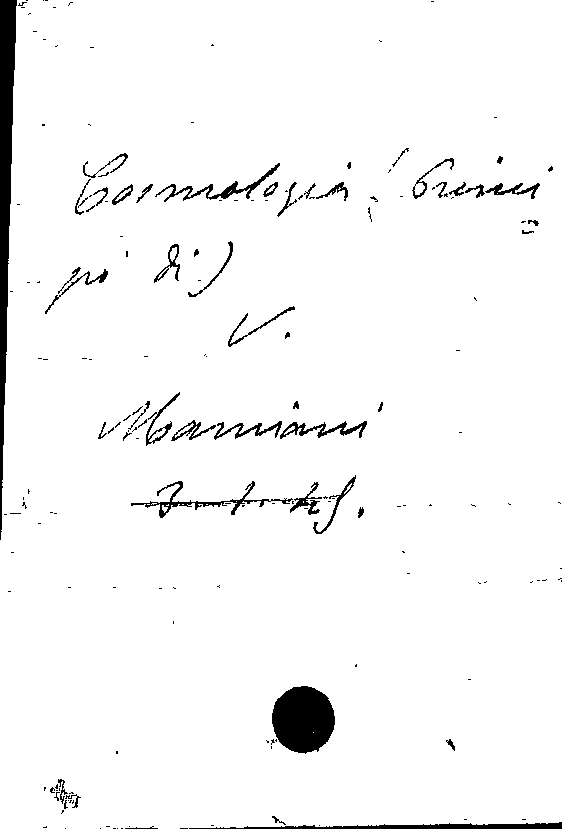 Cosmologia (Princi=
pi di)
V.
Mamiani
3.1.45.